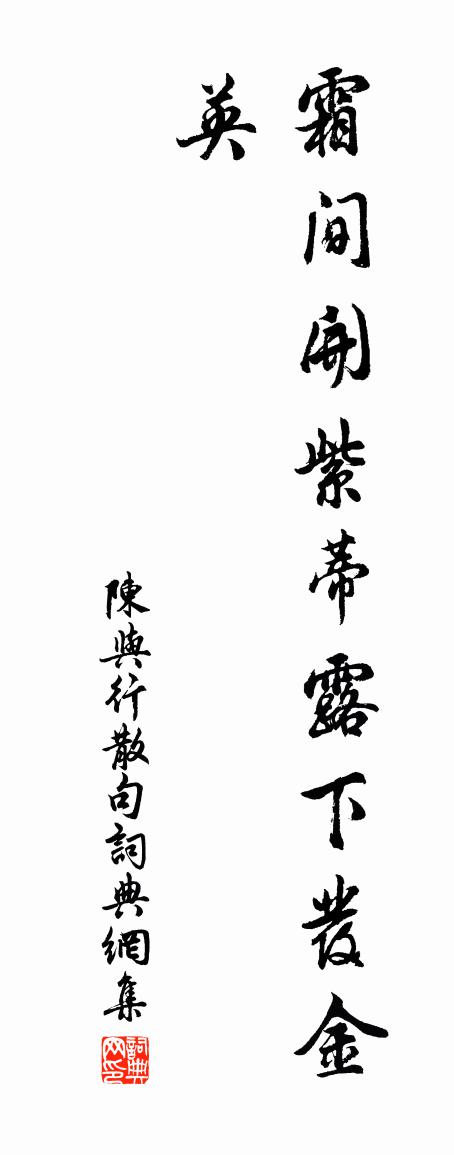 霜间開紫蒂露下发金
英
陳與行散句詞典網集
詞典网印